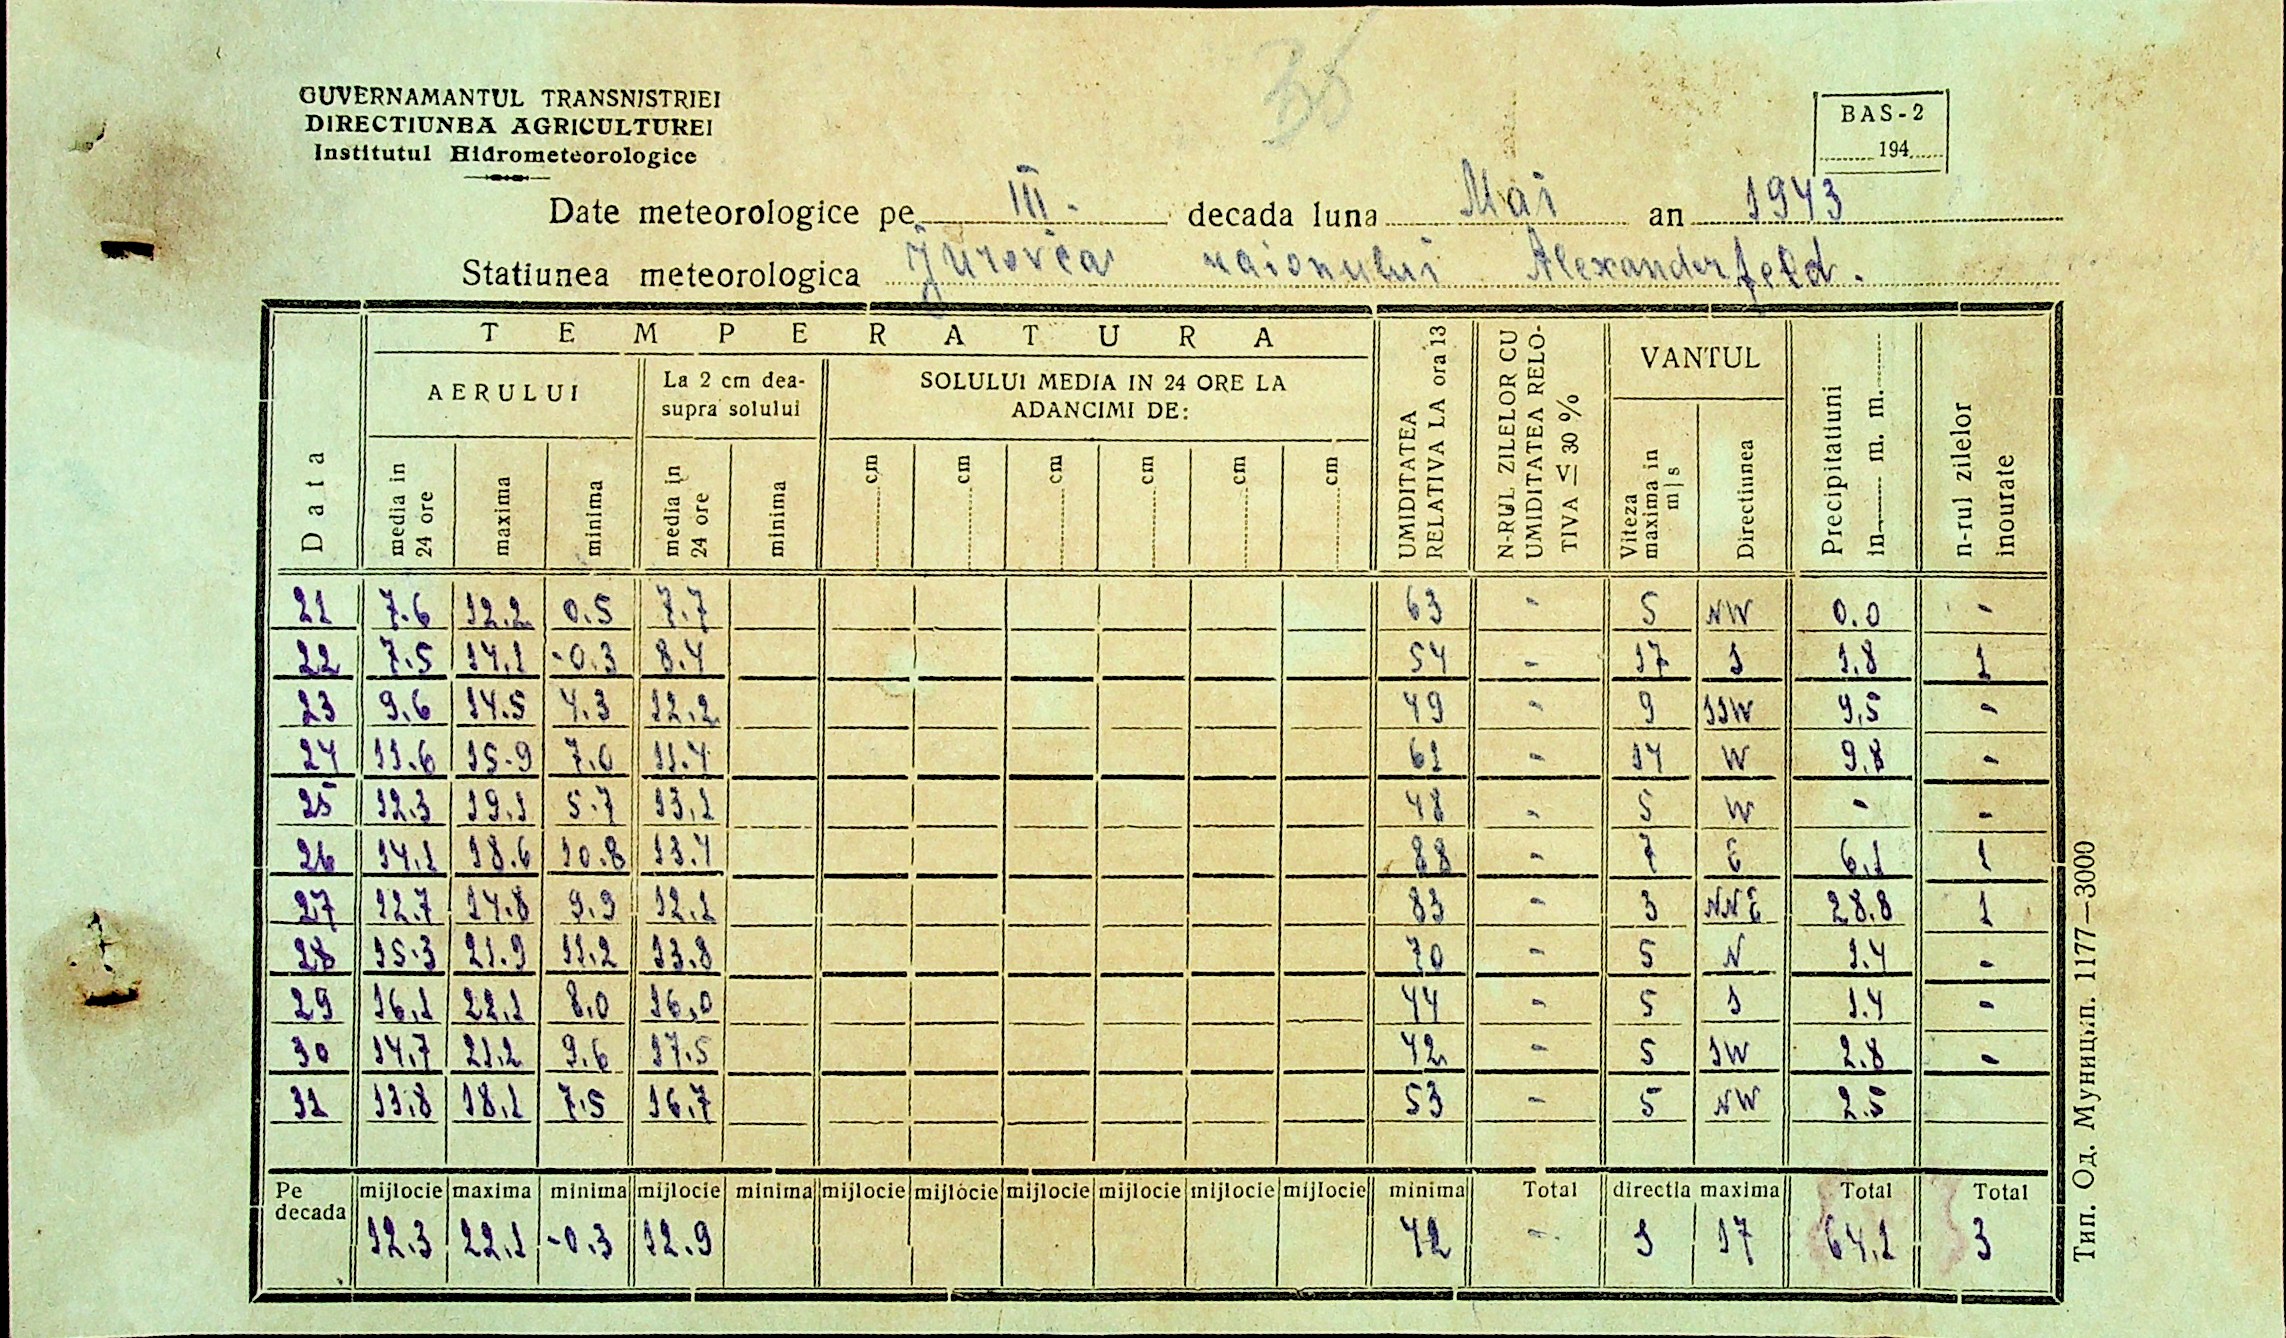 35
GUVERNAMANTUL TRANSNISTRIEI
DIRECTIUNEA AGRICULTUREI
Institutul Hidrometeorologice
BAS-2
194
Date meteorologice pe III. decada luna Mai an 1943
Statiunea meteorologica Jurovca raionului Alexanderfeld.
Data
TEMPERATURA
AERULUI
media in 24 ore
maxima
minima
La 2 cm deasupra solului
media in 24 ore
minima
SOLULUI MEDIA IN 24 ORE LA ADANCIMI DE:
cm cm cm cm cm cm
UMIDITATEA RELATIVA LA ora 13
N-RUL ZILELOR CU UMIDITATEA RELO-TIVA ≤ 30 %
VANTUL
Viteza maxima in m|s
Directiunea
Precipitatiuni in m. m.
n-rul zilelor inourate
21 7.6 12.2 0.5 7.7 63 - 5 NW 0.0 -
22 7.5 14.1 -0.3 8.4 54 - 17 S 1.8 1
23 9.6 14.5 4.3 12.2 49 - 9 SSW 9.5 -
24 11.6 15.9 7.0 11.4 61 - 14 W 9.8 -
25 12.3 19.1 5.7 13.1 48 - 5 W - -
26 14.1 18.6 10.8 13.4 88 - 7 E 6.1 1
27 12.7 14.8 9.9 12.1 83 - 3 NNE 28.8 1
28 15.3 21.9 11.2 13.8 70 - 5 N 1.4 -
29 16.1 22.1 8.0 16.0 44 - 5 S 1.4 -
30 14.7 21.2 9.6 17.5 42 - 5 SW 2.8 -
31 13.8 18.1 7.5 16.7 53 - 5 NW 2.5
Pe decada mijlocie maxima minima mijlocie minima mijlocie mijlocie mijlocie mijlocie mijlocie mijlocie minima Total directia maxima Total Total
12.3 22.1 -0.3 12.9 42 - S 17 64.1 3
Тип. Од. Муницип. 1177—3000